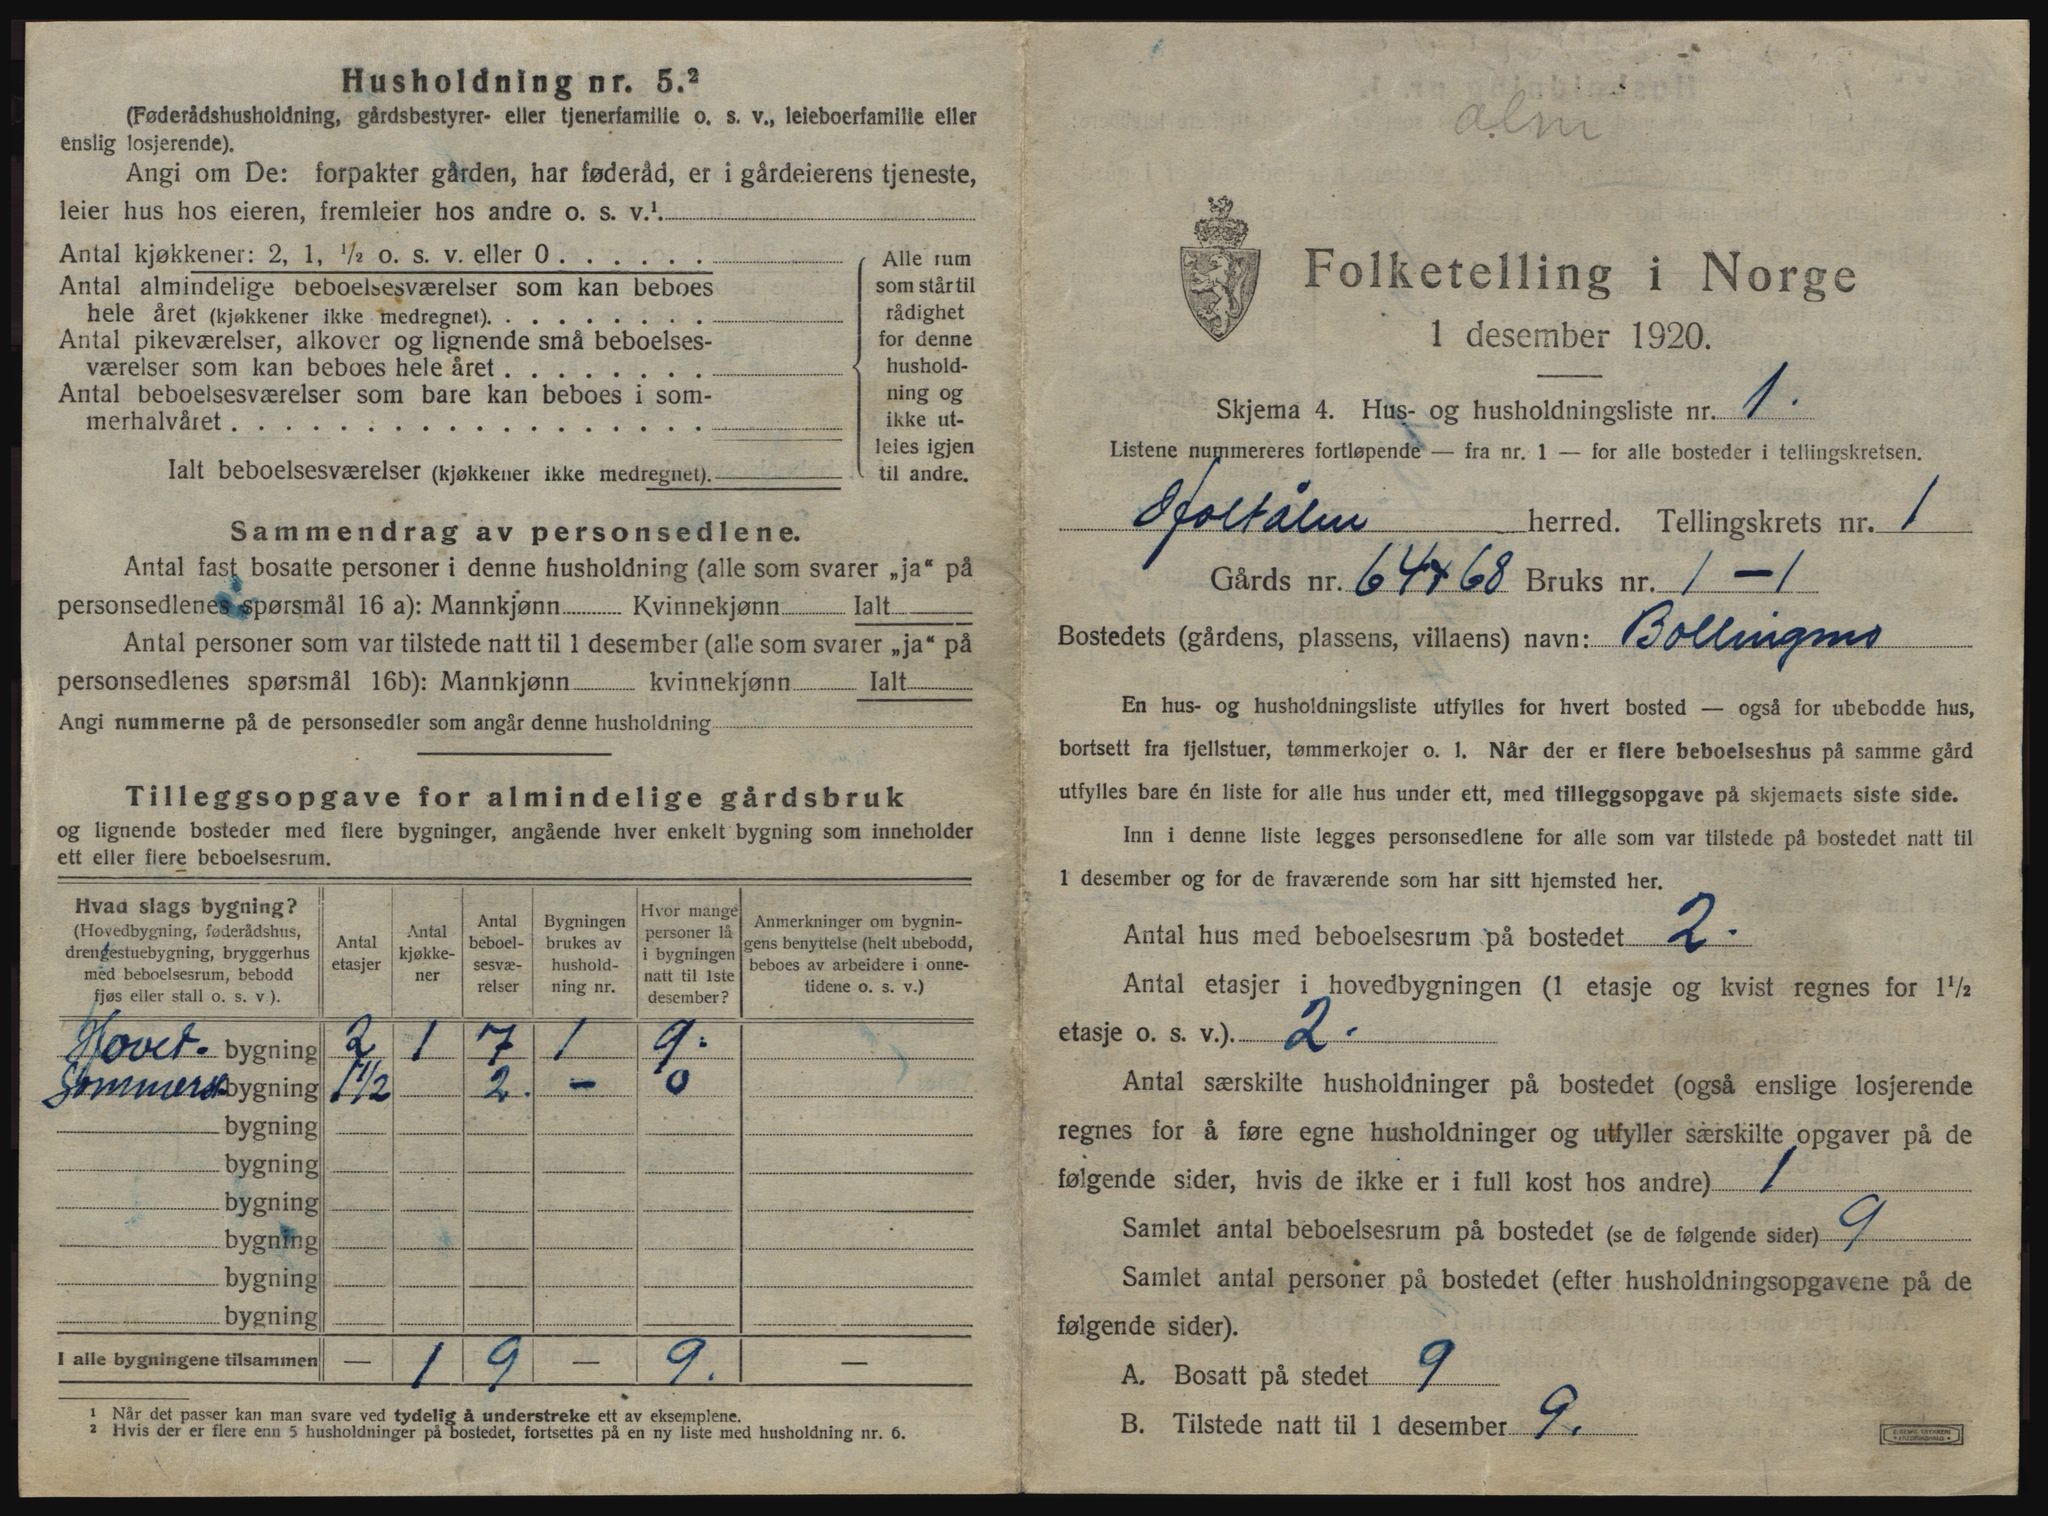 Husholdning nr. 5.²
(Føderådshusholdning, gårdsbestyrer- eller tjenerfamilie o. s. v., leieboerfamilie eller
enslig losjerende).
Angi om De: forpakter gården, har føderåd, er i gårdeierens tjeneste,
leier hus hos eieren, fremleier hos andre o. s. v.¹
Antal kjøkkener: 2, 1, ½ o. s. v. eller 0
Antal almindelige beboelsesværelser som kan beboes
hele året (kjøkkener ikke medregnet).
Antal pikeværelser, alkover og lignende små beboelses-
værelser som kan beboes hele året
Antal beboelsesværelser som bare kan beboes i som-
merhalvåret
Ialt beboelsesværelser (kjøkkener ikke medregnet).
Alle rum
som står til
rådighet
for denne
hushold-
ning og
ikke ut-
leies igjen
til andre.
Sammendrag av personsedlene.
Antal fast bosatte personer i denne husholdning (alle som svarer „ja“ på
personsedlenes spørsmål 16 a): Mannkjønn Kvinnekjønn Ialt
Antal personer som var tilstede natt til 1 desember (alle som svarer „ja“ på
personsedlenes spørsmål 16b): Mannkjønn kvinnekjønn Ialt
Angi nummerne på de personsedler som angår denne husholdning
Tilleggsopgave for almindelige gårdsbruk
og lignende bosteder med flere bygninger, angående hver enkelt bygning som inneholder
ett eller flere beboelsesrum.
Hvad slags bygning?
(Hovedbygning, føderådshus,
drengestuebygning, bryggerhus
med beboelsesrum, bebodd
fjøs eller stall o. s. v.).
Antal
etasjer
Antal
kjøkke-
ner
Antal
beboel-
sesvæ-
relser
Bygningen
brukes av
hushold-
ning nr.
Hvor mange
personer lå
i bygningen
natt til 1ste
desember?
Anmerkninger om bygnin-
gens benyttelse (helt ubebodd,
beboes av arbeidere i onne-
tidene o. s. v.)
Hovet- bygning 2 1 7 1 9.
bygning 1½ 2. - 0
bygning
bygning
bygning
bygning
bygning
bygning
I alle bygningene tilsammen — 1 9 — 9. —
¹ Når det passer kan man svare ved tydelig å understreke ett av eksemplene.
² Hvis der er flere enn 5 husholdninger på bostedet, fortsettes på en ny liste med husholdning nr. 6.
alm
Folketelling i Norge
1 desember 1920.
Skjema 4. Hus- og husholdningsliste nr. 1.
Listene nummereres fortløpende — fra nr. 1 — for alle bosteder i tellingskretsen.
Holtålen herred. Tellingskrets nr. 1
Gårds nr. 64 + 68 Bruks nr. 1 - 1
Bostedets (gårdens, plassens, villaens) navn: Bollingmo
En hus- og husholdningsliste utfylles for hvert bosted — også for ubebodde hus,
bortsett fra fjellstuer, tømmerkojer o. l. Når der er flere beboelseshus på samme gård
utfylles bare én liste for alle hus under ett, med tilleggsopgave på skjemaets siste side.
Inn i denne liste legges personsedlene for alle som var tilstede på bostedet natt til
1 desember og for de fraværende som har sitt hjemsted her.
Antal hus med beboelsesrum på bostedet 2.
Antal etasjer i hovedbygningen (1 etasje og kvist regnes for 1½
etasje o. s. v.). 2.
Antal særskilte husholdninger på bostedet (også enslige losjerende
regnes for å føre egne husholdninger og utfyller særskilte opgaver på de
følgende sider, hvis de ikke er i full kost hos andre) 1
Samlet antal beboelsesrum på bostedet (se de følgende sider) 9
Samlet antal personer på bostedet (efter husholdningsopgavene på de
følgende sider).
A. Bosatt på stedet 9
B. Tilstede natt til 1 desember 9.